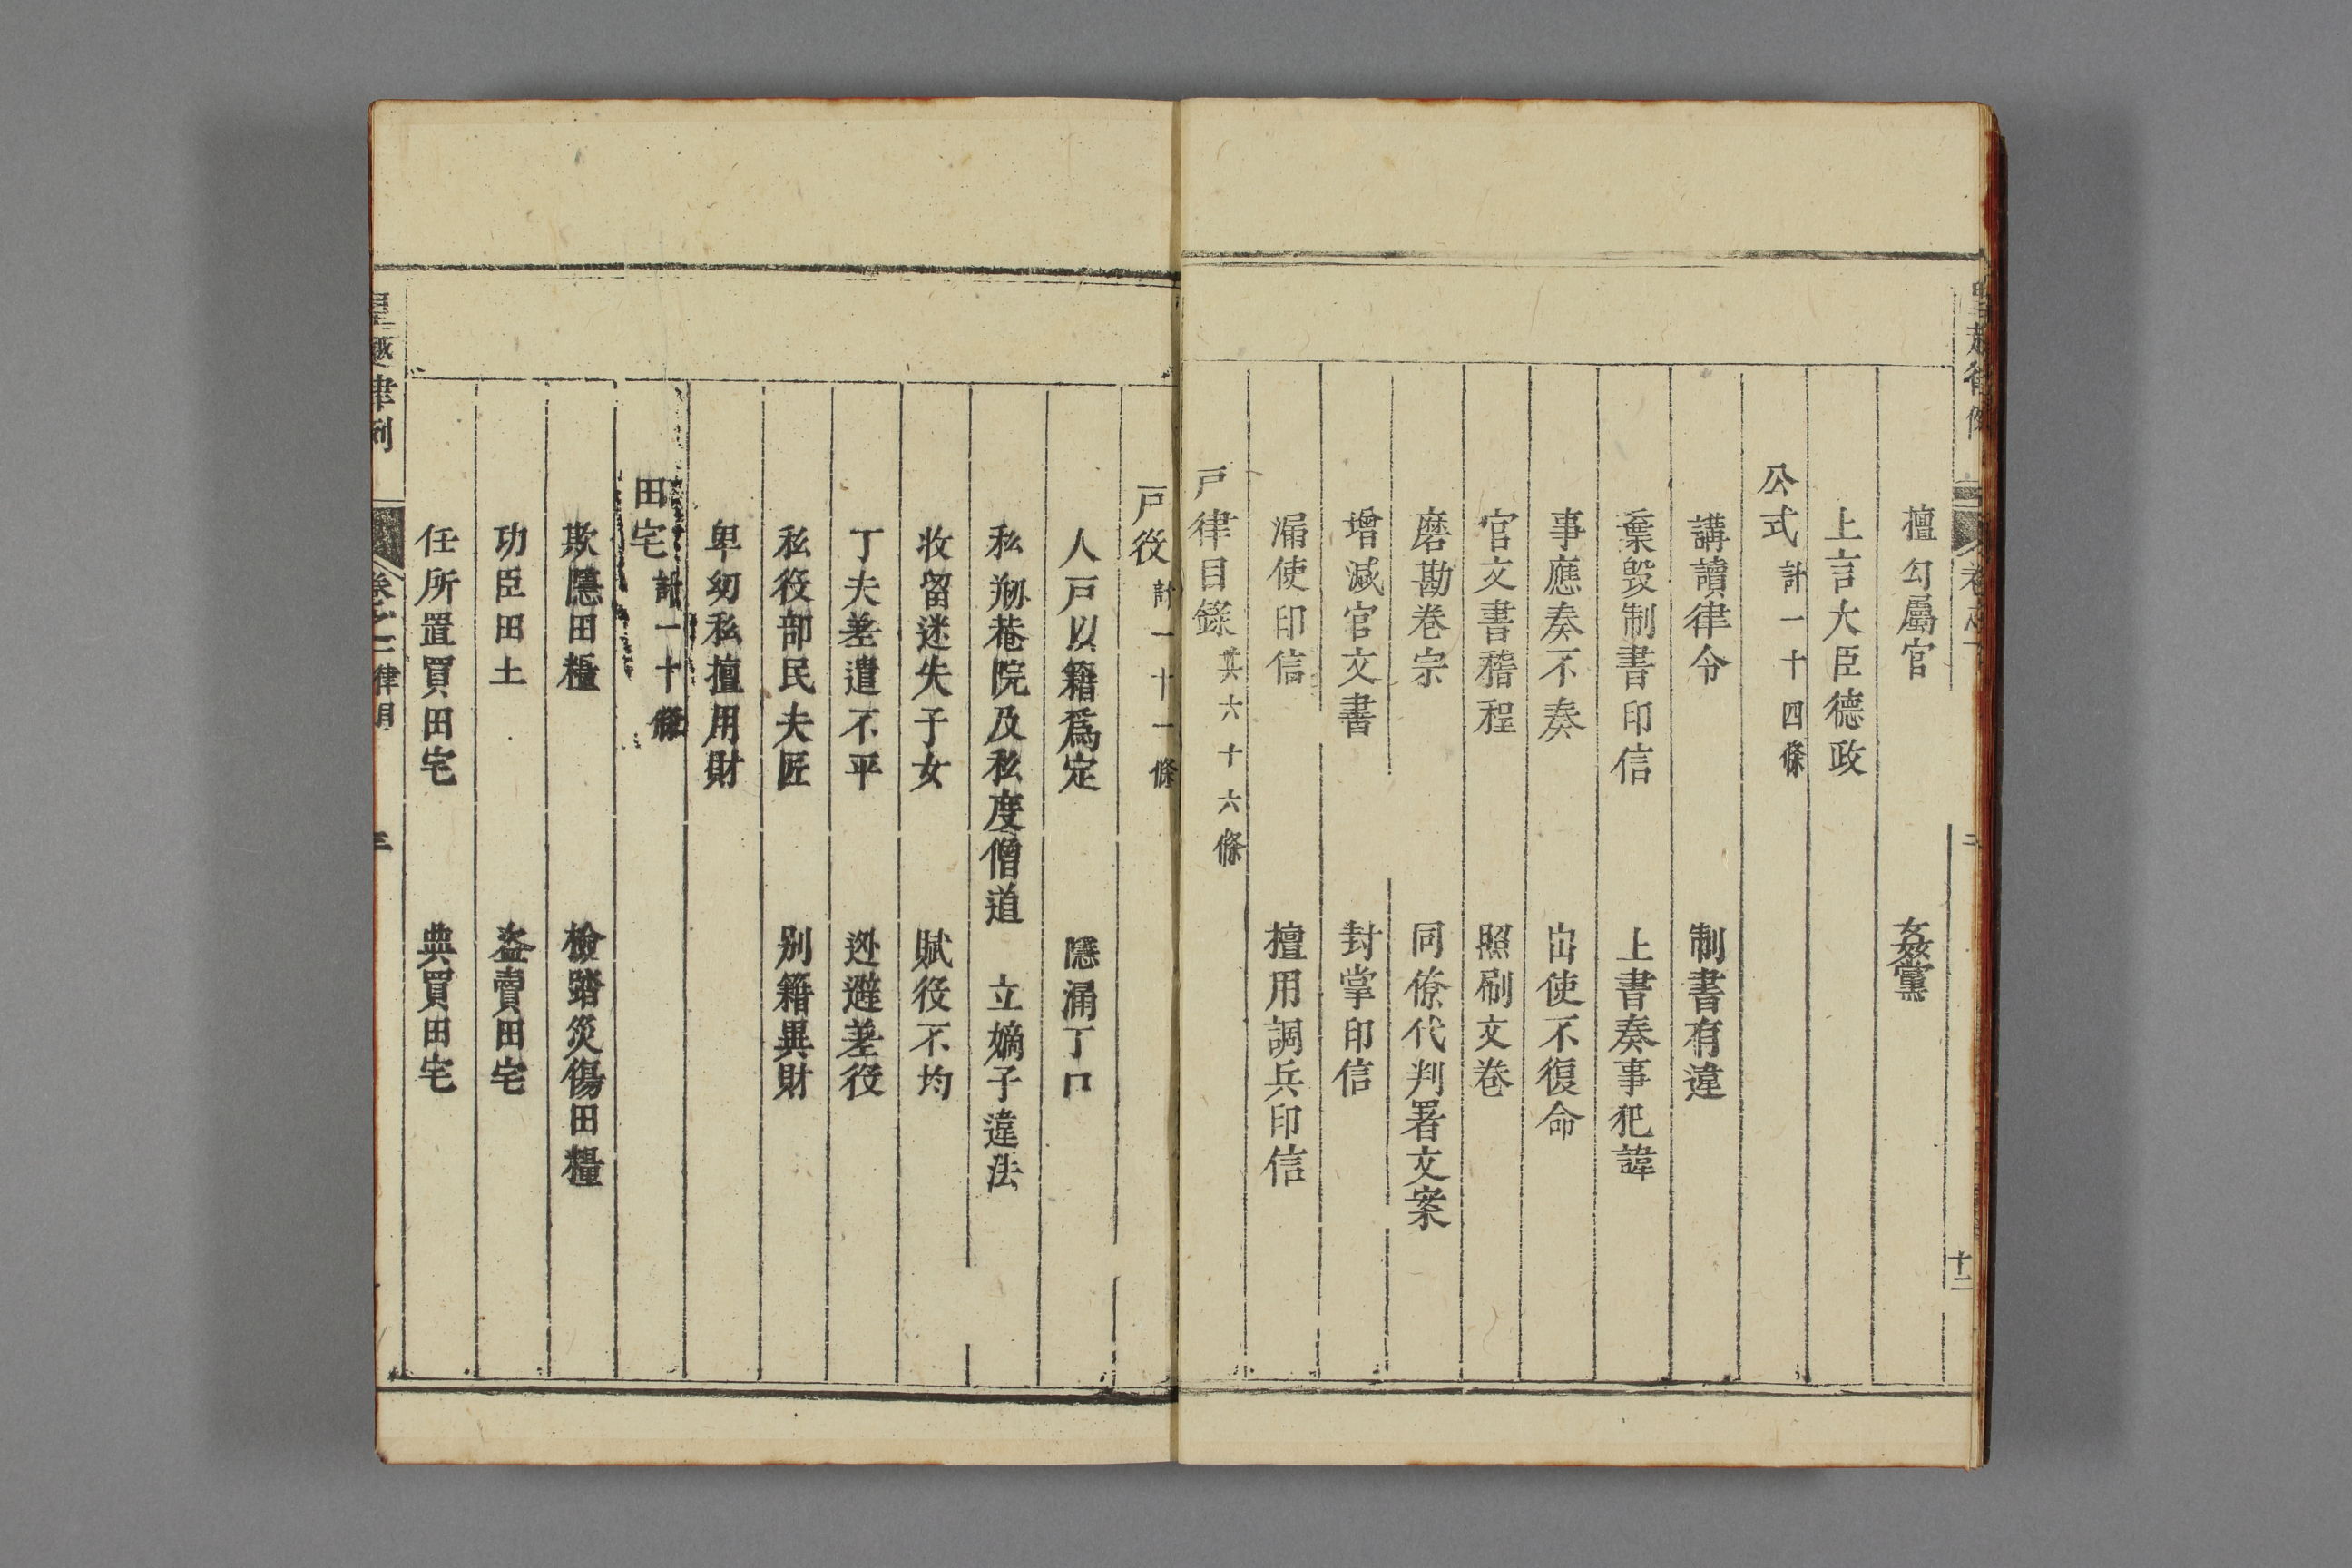 擅勾屬官　姦黨
上言大臣德政
公式計一十四條
講讀律令　制書有違
棄毀制書印信　上書奏事犯諱
事應奏不奏　出使不復命
官文書稽程　照刷文卷
磨勘卷宗　同僚代判署文案
增減官文書　封掌印信
漏使印信　擅用調兵印信
戶律目錄共六十六條
戶役計一十一條
人戶以籍爲定　隱漏丁口
私剏菴院及私度僧道　立嫡子違法
收留迷失子女　賦役不均
丁夫差遣不平　逃避差役
私役部民夫匠　別籍異財
卑幼私擅用財
田宅計一十條
欺隱田糧　檢踏災傷田糧
功臣田土　盜賣田宅
任所置買田宅　典買田宅
皇越律例　卷之一律目　三